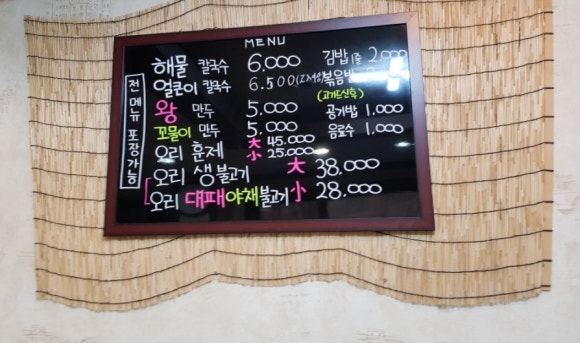 MENU
전 메뉴 포장가능
해물 칼국수 6.000
얼큰이 칼국수 6.500
왕 만두 5.000
꼬물이 만두 5.000
오리 훈제 大 45.000
小 25.000
오리 생불고기 大 38.000
오리 대패야채불고기 小 28.000
김밥 1줄 2.000
볶음밥
공기밥 1.000
음료수 1.000